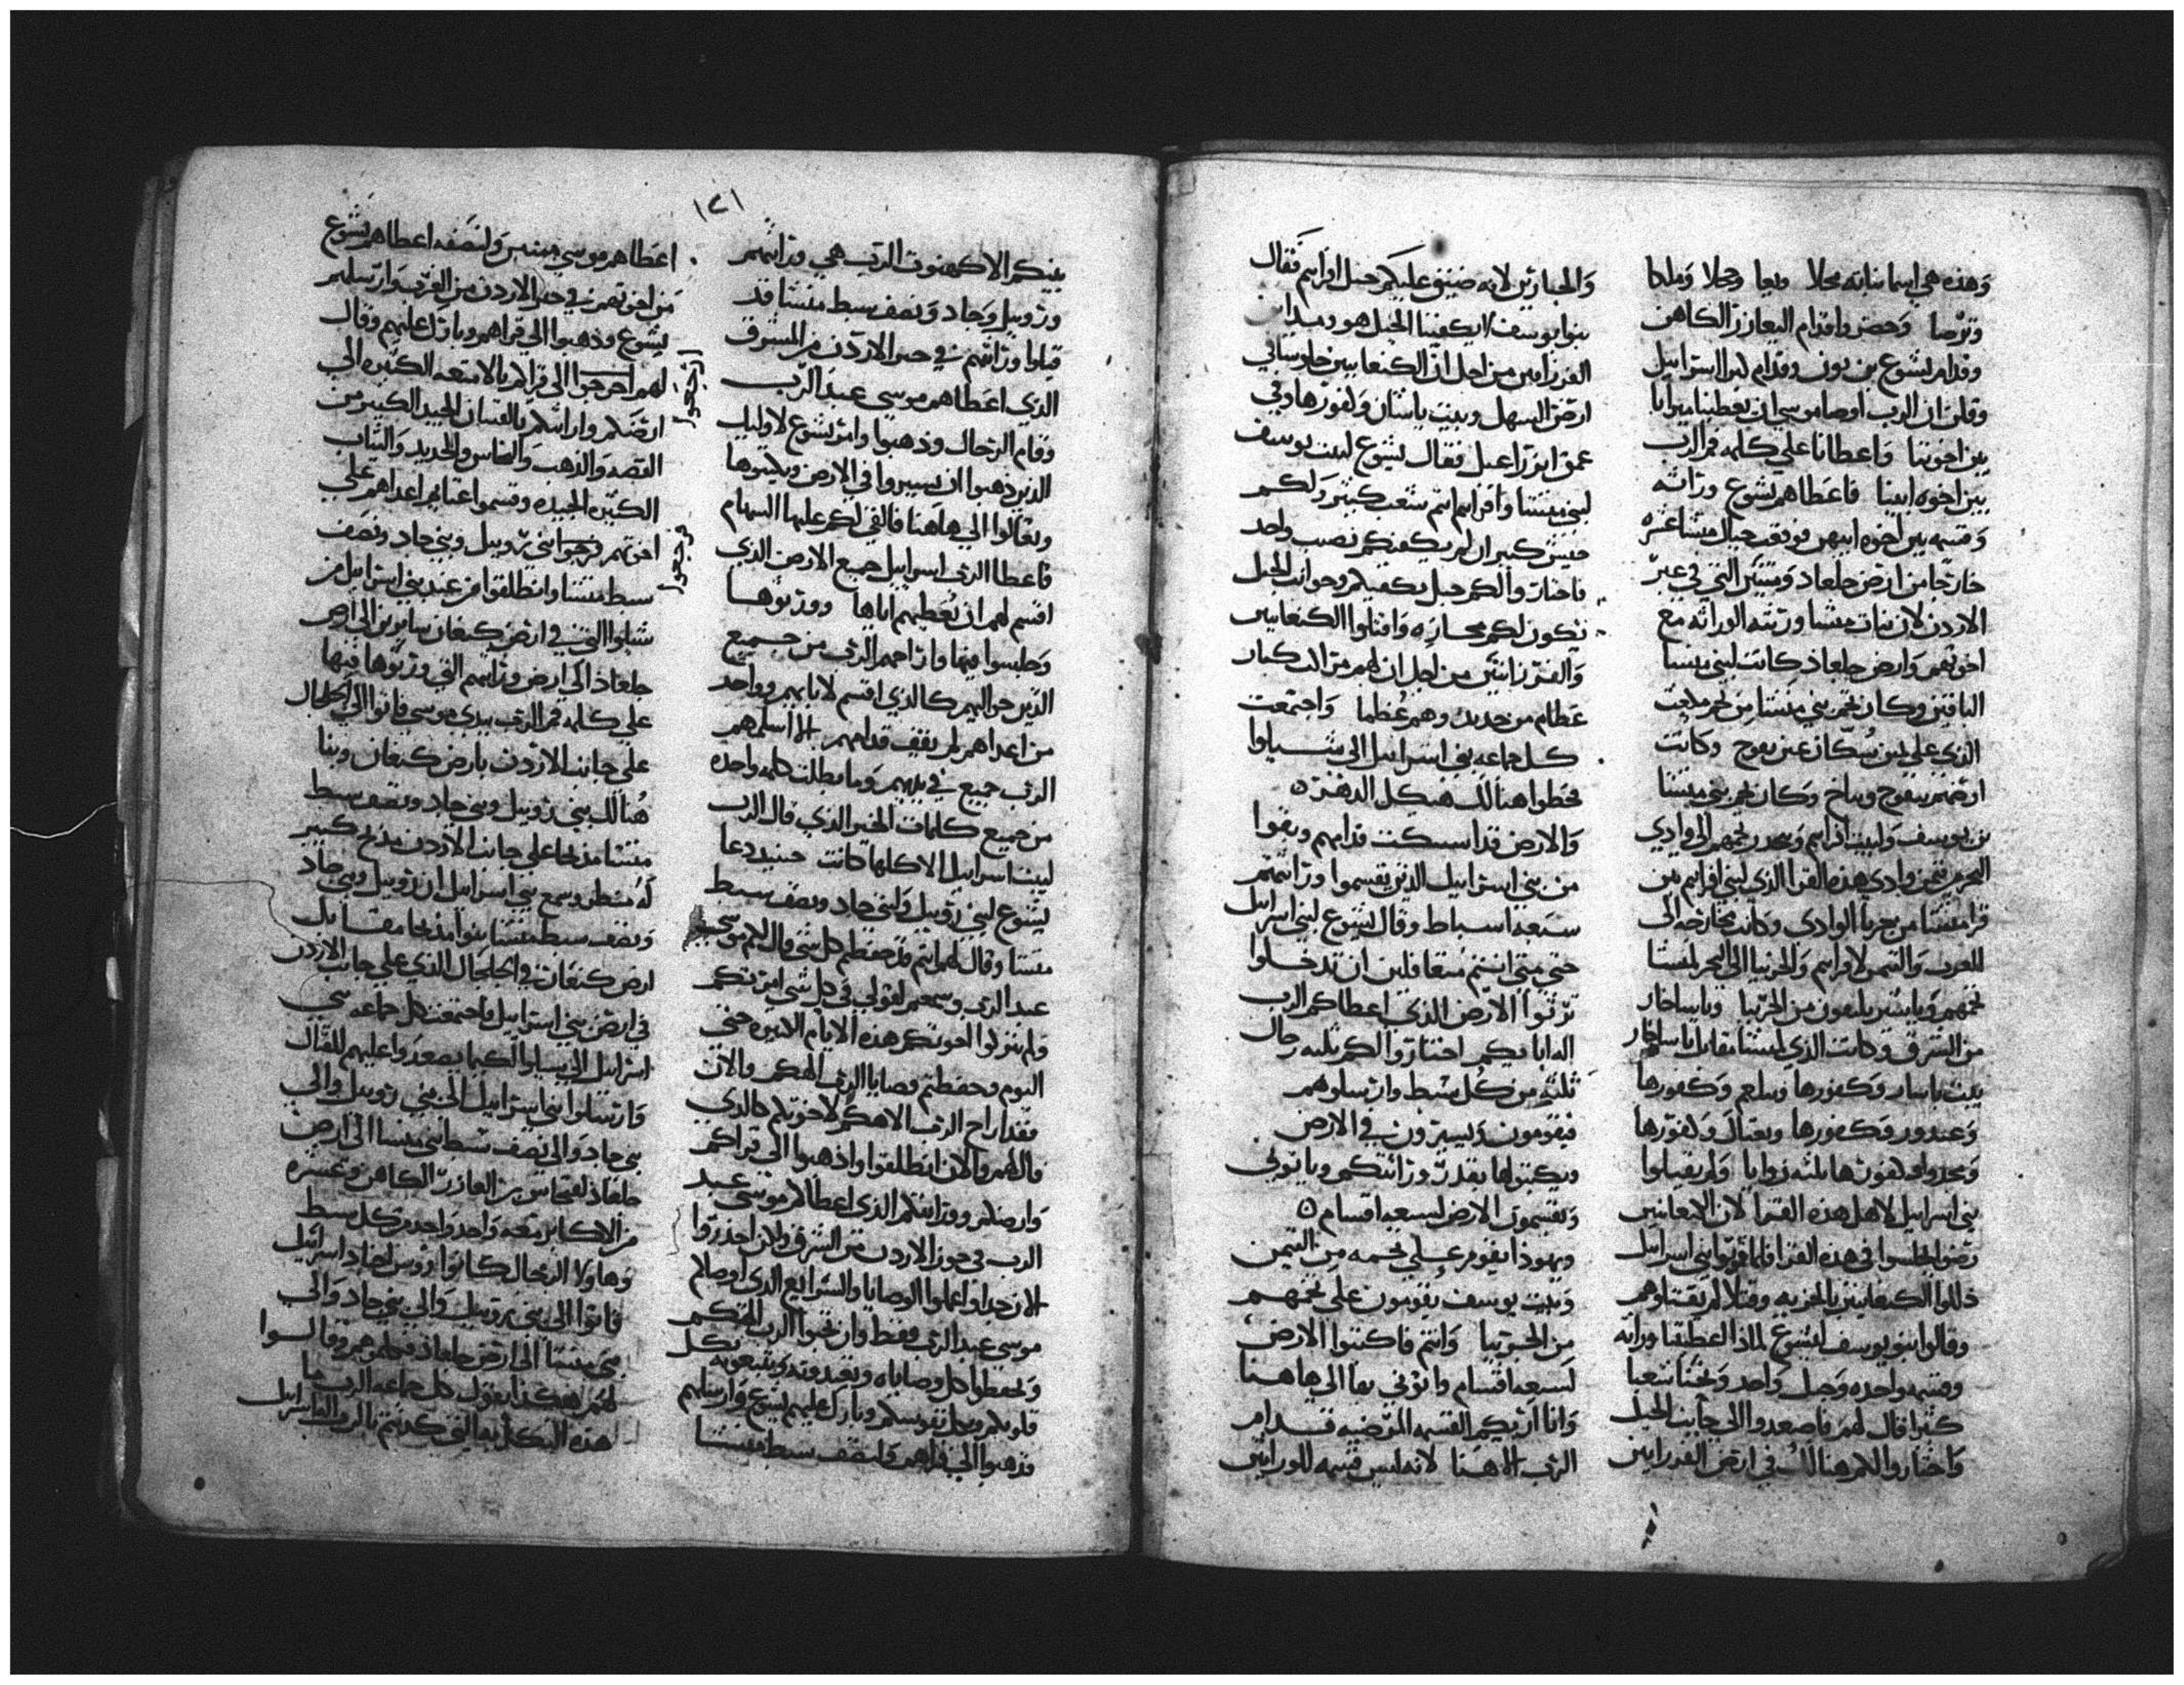 وهذه هي اسما بناته محلا ونعا وحجلا وملكا
وترصا وحضروا قدام اليعازر الكاهن
وقدام يشوع بن نون وقدام كبرا اسراييل
وقلن ان الرب اوصا موسي ان يعطينا ميراثا
بين اخوتنا واعطانا علي كلمة فم الرب
بين اخوه ابينا فاعطاهم يشوع وراثه
وقسمه بين اخوه ابيهن فوقعت حبال منشا عشره
خارجا من ارض جلعاد ومتنين التي في عبر
الاردن لان بنات منشا ورثته الوراثه مع
اخوتهم وارض جلعاد كانت لبني منشا
الباقين وكان تخم بني منشا من
الذي علي يمين سكان عين يفوح وكانت
ارض يفوح وكان تخم بني منشا
بن يوسف ولبيت افرايم وينحدر تخمهم الي وادي
وادي هذه القرا الذي لبني افرايم من
قرا منشا من جربيا الوادي وكانت مخارجه الي
للغرب والتيمن لافرايم والجربيا الي البحر لمنشا
تخمهم وياشير يلتقون من الجربيا وباساخار
من الشرق وكانت الذي لمنشا مقابل ياساخار
بيت ياسان وكفورها ويبلعم وكفورها
وعندور وكفورها وتعنال وكفورها
ومجدوا وكفورها ثلثه زوايا ولم يقبلوا
بني اسراييل لاهل هذه القرا لان الكنعانيين
رضوا يجلسوا في هذه القرا فلما قووا بني اسراييل
ذللوا الكنعانيين بالجزيه وقتلا لم يقتلوهم
وقالوا بنو يوسف ليشوع لماذا اعطيتنا وراثه
وقسمه واحده وحبل واحد ونحن شعبا
كثيرا قال لهم فاصعدوا الي جانب الجبل
واختاروا لكم هنالك في ارض الفرزانيين
والجبارين لانه ضيق عليكم جبل افرايم فقال
بنوا يوسف لا يكفينا الجبل هو
الفرزانيين من اجل ان الكنعانيين جلوس في
ارض السهل وبيت ياشان وكفورها وفي
عمق ايزراعيل فقال يشوع لبيت يوسف
لبني منشا وافرايم انتم شعب كبير ولكم
جيش كبير ان لم يكفيكم نصيب واحد
فاختاروا لكم جبل يكفيكم وجوانب الجبل
تكون لكم مجازه واقتلوا الكنعانيين
والفرزانيين من اجل ان لهم مراكب كبار
عظام من حديد وهم عظما واجتمعت
كل جماعه بني اسراييل الي شيلوا
فحطوا هنالك هيكل الدهر
والارض قد اسكنت قدامهم وبقوا
من بني اسراييل الذين يقسموا وراثتهم
سبعه اسباط وقال يشوع لبني اسراييل
حتي متي انتم متغافلين ان تدخلوا
ترثوا الارض الذي اعطاكم الرب
اله اباييكم اختاروا لكم ثلثه رجال
ثلثه من كل سبط وارسلوهم
فيقومون ويسيرون في الارض
ويكتبوها بقدر وراثتكم وياتوني
وتقسمون الارض لسبعه اقسام
ويهوذا يقوم علي تخمه من التيمن
وبيت يوسف يقومون علي تخمهم
من الجربيا وانتم فاكتبوا الارض
لسبعه اقسام واتوني بها الي هاهنا
وانا اريكم القسمه المرضيه قدام
الرب الاهنا لانه ليس قسمه للورانيين
١٢١
بينكم الا كهنوت الرب هي وراثتهم
وروبيل وجاد ونصف سبط منشا قد
قبلوا وراثتهم في عبر الاردن من المشرق
الذي اعطاهم موسي عبد الرب
وقام الرجال وذهبوا وامر يشوع لاوليك
الذين ذهبوا ان يسيروا في الارض ويكتبوها
وتعالوا الي هاهنا فالقي لكم عليها السهام
فاعطا الرب اسراييل جميع الارض الذي
اقسم لهم ان يعطيهم اياها وورثوها
وجلسوا فيها واراحهم الرب من جميع
الذين حواليهم كالذي اقسم لاباييهم وواحد
من اعداهم لم يقف قدامهم الا اسلمهم
الرب جميع في يديهم وما بطلت كلمه واحده
من جميع كلمات الخير الذي قال الرب
لبيت اسراييل الا كلها كانت حينيد دعا
يشوع لبني روبيل ولبني جاد ونصف سبط
منشا وقال لهم انتم قد حفظتم كل شي قال لكم موسي
عبد الرب وسمعتم لقولي في كل شي امرتكم
ولم تتركوا اخوتكم هذه الايام الكثيره حتي
اليوم وحفظتم وصايا الرب الهكم والان
فقد اراح الرب الاهكم لاخوتكم كالذي
قال لهم والان انطلقوا واذهبوا الي قراكم
وارضكم ووراثتكم الذي اعطاكم موسي عبد
الرب في جوز الاردن من الشرق ولكن احذروا
لان جدا واعملوا الوصايا والشرايع الذي اوصاكم
موسي عبد الرب فقط وان تحبوا الرب الهكم
وتحفظوا كل وصاياه وتعبدونه وتتبعونه بكل
قلوبكم وبكل نفوسكم وبارك عليهم يشوع وارسلهم
وذهبوا الي قراهم فلنصف سبط منشا
اعطاهم موسي ولنصفه اعطاهم يشوع
من اخوتهم في عبر الاردن من الغرب وارسلهم
يشوع وذهبوا الي قراهم وبارك عليهم وقال
لهم اخرجوا الي قراكم بالامتعه الكثيره الي
ارجعوا
ارضكم وارثكم بالقنيان الجيد الكبير من
الفضه والذهب والنحاس والحديد والثياب
الكثيره الجيده وقسموا غنايم اعداهم علي
اخوتهم فخرجوا بني روبيل وبني جاد ونصف
ورجعوا
سبط منشا وانطلقوا من عند بني اسراييل من
شيلوا التي في ارض كنعان سايرين الي ارض
جلعاد الي ارض وراثتهم التي ورثوها فيها
علي كلمه فم الرب بيدي موسي فاتوا الي الجلجال
علي جانب الاردن بارض كنعان وبنا
هنالك بني روبيل وبني جاد ونصف سبط
منشا مذبحا علي جانب الاردن مذبح كبير
له منظر وسمع بني اسراييل ان روبيل وبني جاد
ونصف سبط منشا بنوا مذبحا مقابل
ارض كنعان في الجلجال الذي علي جانب الاردن
في ارض بني اسراييل فاجتمعت كل جماعه بني
اسراييل الي سيلوا لكيما يصعدوا عليهم للقتال
وارسلوا بني اسراييل الي بني روبيل والي
بني جاد والي نصف سبط بني منشا الي ارض
جلعاد لفنحاس بن العازر الكاهن وعشره
من الاكابر معه واحد واحد من كل سبط
وهاولا الرجال كانوا رووس اجناد اسراييل
فاتوا الي بني روبيل والي بني جاد والي
بني منشا الي ارض جلعاد فكلموهم وقالوا
لهم هكذا يقول كل جماعه الرب ما
هذه النكايه التي كذبتم بالرب اله اسراييل